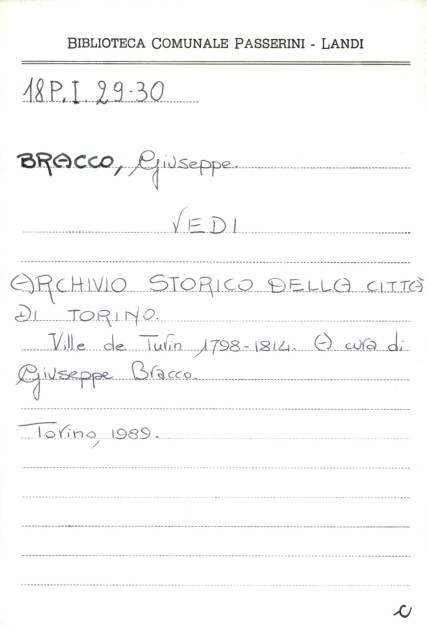 BIBLIOTECA COMUNALE PASSERINI - LANDI
18P.I. 29-30
BRACCO, Giuseppe.
VEDI
ARCHIVIO STORICO DELLA CITTÀ
DI TORINO.
Ville de Turin 1798-1814. A cura di
Giuseppe Bracco.
Torino, 1989.
c